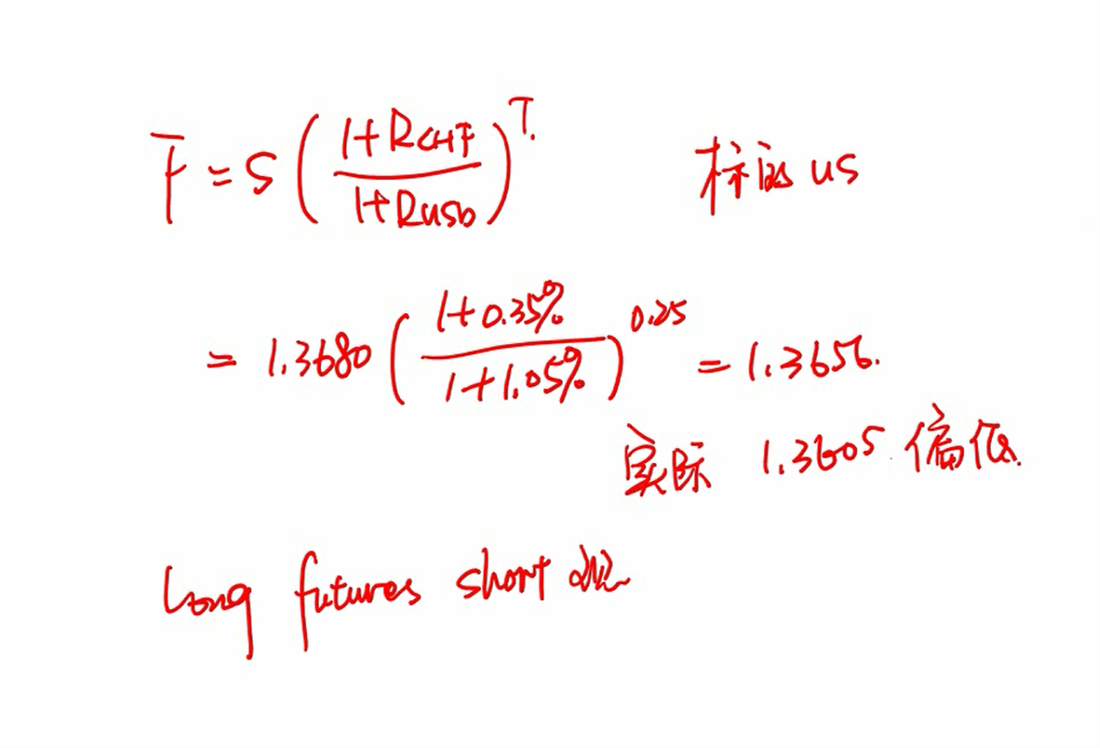 F = S ( (1+R_CHF) / (1+R_USD) )^T. 标的 US
= 1.3680 ( (1+0.35%) / (1+1.05%) )^0.25 = 1.3656.
实际 1.3605 偏低.
Long futures short